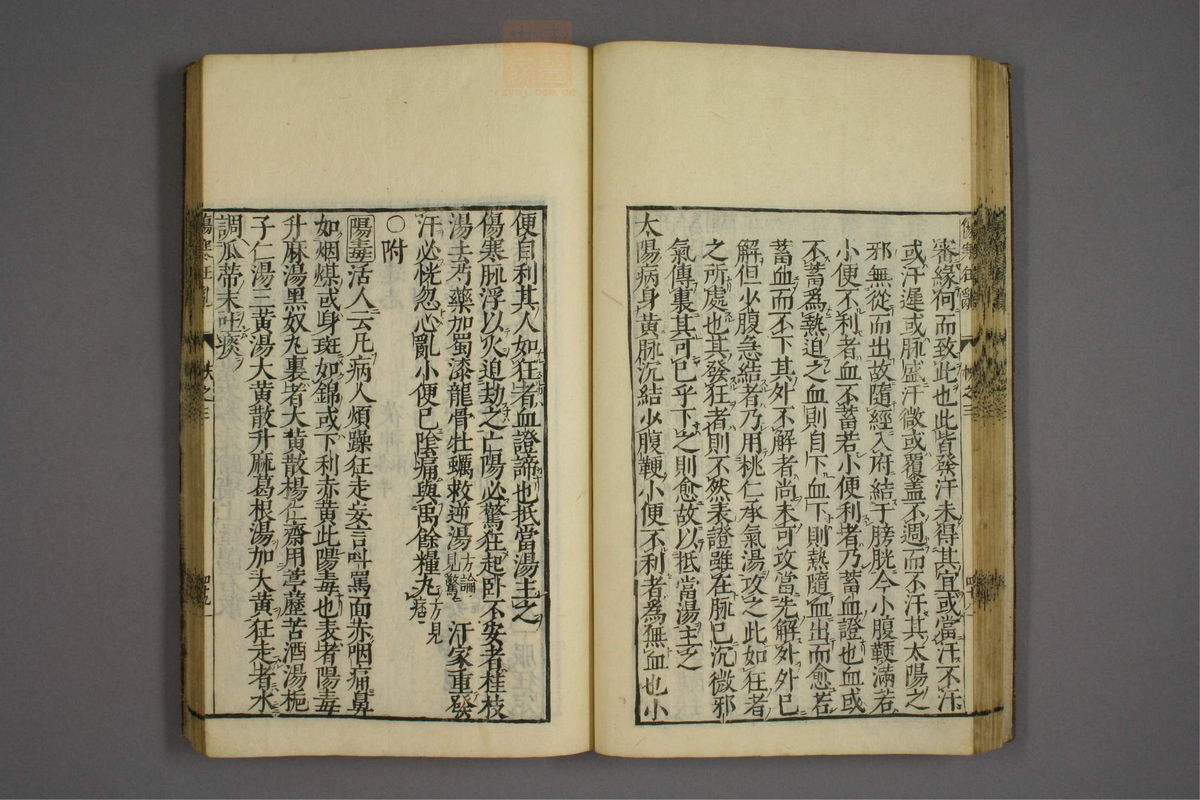 審緣何而致此也此皆發汗未得其宜或當汗不汗
或汗遲或脉盛汗微或覆盖不週而不汗其太陽之
邪無從而出故隨經入府結于膀胱今小腹鞕滿若
小便不利者血不蓄若小便利者乃蓄血證也血或
不蓄爲熱迫之血則自下血下則熱隨血出而愈若
蓄血而不下其外不解者尚未可攻當先解外外已
解但少腹急結者乃用桃仁承氣湯攻之此如狂者
之所處也其發狂者則不然表證雖在脉已沉微邪
氣傳裏其可已乎下之則愈故以抵當湯主之
太陽病身黃脉沉結少腹鞕小便不利者爲無血也小
便自利其人如狂者血證諦也抵當湯主之
傷寒脉浮以火迫劫之亡陽必驚狂起卧不安者桂枝
湯去芍藥加蜀漆龍骨牡蠣救逆湯方論見驚 汗家重發
汗必恍忽心亂小便已陰痛與禹餘糧丸方見痞
○附
陽毒活人云凡病人煩躁狂走妄言叫罵面赤咽痛鼻
如烟煤或身斑如錦或下利赤黃此陽毒也表者陽毒
升麻湯黑奴丸裏者大黃散楊仁齋用葶藶苦酒湯梔
子仁湯三黃湯大黃散升麻葛根湯加大黃狂走者水
調瓜蒂末吐痰